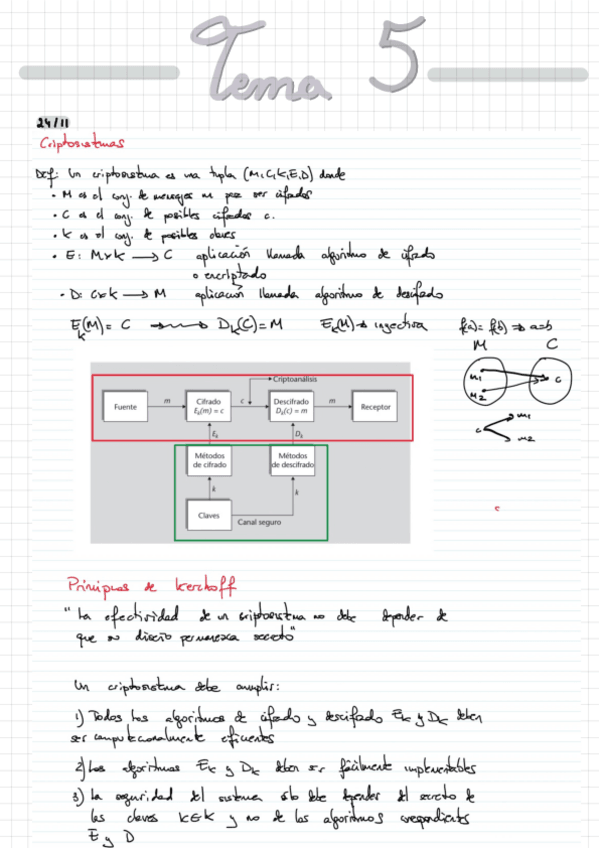 Tema 5
24/11
Criptosistemas
Def: Un criptosistema es una tupla (M,C,K,E,D) donde
• M es el conj. de mensajes m para ser cifrados
• C es el conj. de posibles cifrados c.
• K es el conj. de posibles claves
• E: M×K → C aplicación llamada algoritmo de cifrado
o encriptado
• D: C×K → M aplicación llamada algoritmo de descifrado
E_k(M) = C → D_k(C) = M E_k(M) → inyectiva f(a) = f(b) ⇒ a=b
M C
m1
m2
c
c
m1
m2
Criptoanálisis
Fuente
m
Cifrado
E_k(m) = c
c
Descifrado
D_k(c) = m
m
Receptor
E_k
D_k
Métodos
de cifrado
Métodos
de descifrado
k
k
Claves
Canal seguro
Principios de Kerchoff
"La efectividad de un criptosistema no debe depender de
que su diseño permanezca secreto"
Un criptosistema debe cumplir:
1) Todos los algoritmos de cifrado y descifrado E_k y D_k deben
ser computacionalmente eficientes
2) Los algoritmos E_k y D_k deben ser fácilmente implementables
3) La seguridad del sistema sólo debe depender del secreto de
las claves k∈K y no de los algoritmos correspondientes
E y D